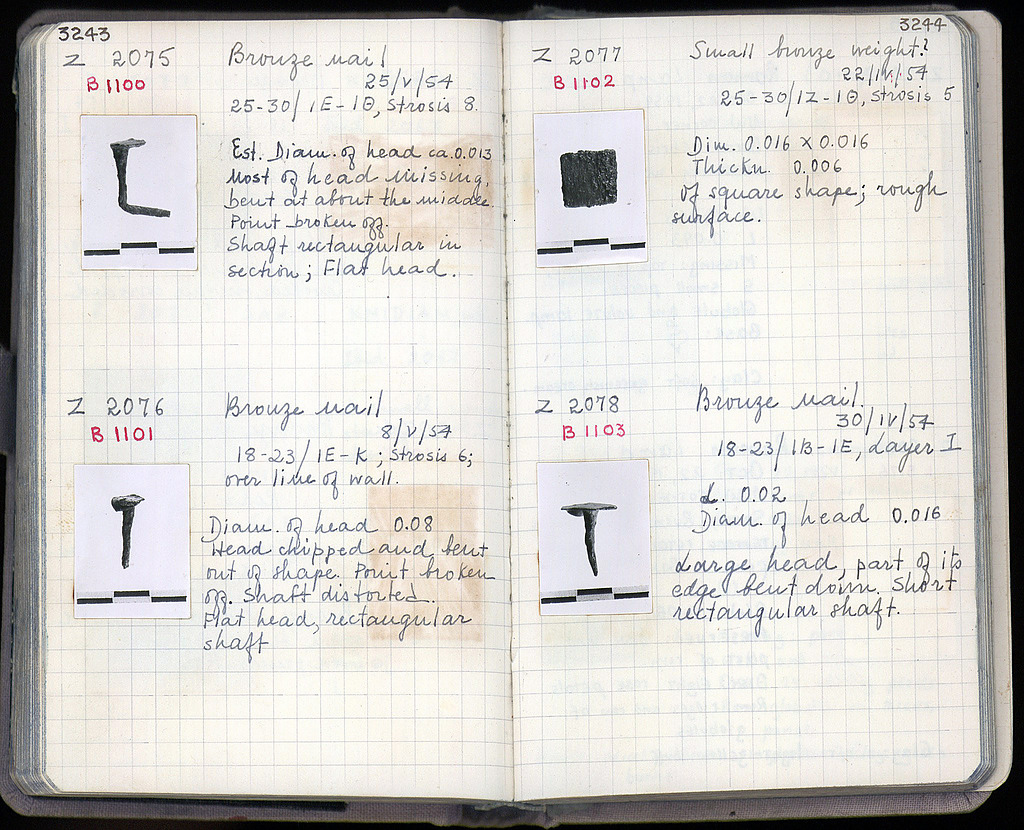 3243
Z 2075 Bronze nail
B 1100 25/V/54
25-30/ΙΕ-ΙΘ, Strosis 8.
Est. Diam. of head ca. 0.013
Most of head missing,
bent at about the middle.
Point broken off.
Shaft rectangular in
section; Flat head.
Z 2076 Bronze nail
B 1101 8/V/54
18-23/ΙΕ-Κ; Strosis 6;
over line of wall.
Diam. of head 0.08
Head chipped and bent
out of shape. Point broken
off. Shaft distorted.
Flat head, rectangular
shaft
3244
Z 2077 Small bronze weight?
B 1102 22/IV/54
25-30/ΙΖ-ΙΘ, Strosis 5
Dim. 0.016 x 0.016
Thickn. 0.006
of square shape; rough
surface.
Z 2078 Bronze nail.
B 1103 30/IV/54
18-23/ΙΒ-ΙΕ, Layer I
L. 0.02
Diam. of head 0.016
Large head, part of its
edge bent down. Short
rectangular shaft.